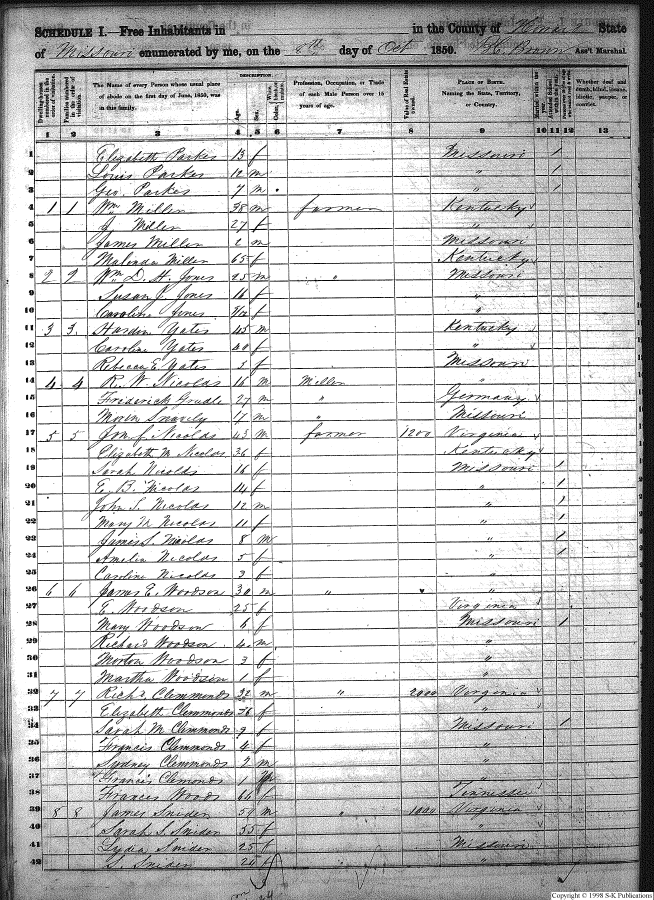 SCHEDULE I. Free Inhabitants in in the County of Howard State
of Missouri enumerated by me, on the 8th day of Oct 1850. Brown Ass't Marshal.
Dwelling-houses numbered in the order of visitation.
Families numbered in the order of visitation.
The Name of every Person whose usual place of abode on the first day of June, 1850, was in this family.
DESCRIPTION.
Age.
Sex.
Color,
Profession, Occupation, or Trade of each Male Person over 15 years of age.
Value of Real Estate owned.
PLACE OF BIRTH.
Naming the State, Territory, or Country.
Married within the year.
Whether deaf and dumb, blind, insane, idiotic, pauper, or convict.
1 2 3 4 5 6 7 8 9 10 11 12 13
1 Elizabeth Parkes 13 f Missouri 1
2 Louis Parkes 10 m " 1
3 Geo. Parkes 7 m " 1
4 1 1 Wm Miller 38 m farmer Kentucky
5 J Miller 27 f "
6 James Miller 2 m Missouri
7 Malinda Miller 65 f Kentucky
8 2 2 Wm D. H. Jones 25 m " Missouri
9 Susan J. Jones 16 f "
10 Caroline Jones f "
11 3 3 Hardin Yates 45 m Kentucky
12 Caroline Yates 40 f "
13 Rebecca E. Yates 5 f Missouri
14 4 4 R. W. Nicolas 16 m Miller "
15 Frederick 27 m " Germany
16 Snavely 17 m " Missouri
17 5 5 Jno. J. Nicolas 43 m farmer 1200 Virginia
18 Elizabeth M Nicolas 36 f Kentucky
19 Sarah Nicolas 16 f Missouri 1
20 E. B. Nicolas 14 f " 1
21 John S. Nicolas 12 m 1
22 Mary Nicolas 11 f " 1
23 James S. Nicolas 8 m " 1
24 Amelia Nicolas 5 f " 1
25 Caroline Nicolas 3 f "
26 6 6 James E. Woodson 30 m " "
27 E. Woodson 25 f Virginia
28 Mary Woodson 6 f Missouri 1
29 Richard Woodson 4 m "
30 Morton Woodson 3 f "
31 Martha Woodson 1 f "
32 7 7 Richd Clemmonds 32 m " 2000 Virginia
33 Elizabeth Clemmonds 36 f "
34 Sarah M Clemmonds 9 f Missouri 1
35 Francis Clemmonds 4 f "
36 Sydney Clemmonds 2 m "
37 Francis Clemonds 1 "
38 Frances Woods 64 f Tennessee
39 8 8 James Snider 59 m " 1000 Virginia
40 Sarah S. Snider 55 f "
41 Lydia Snider 25 f Missouri
42 S. Snider 24 f " "
Copyright © 1998 S-K Publications